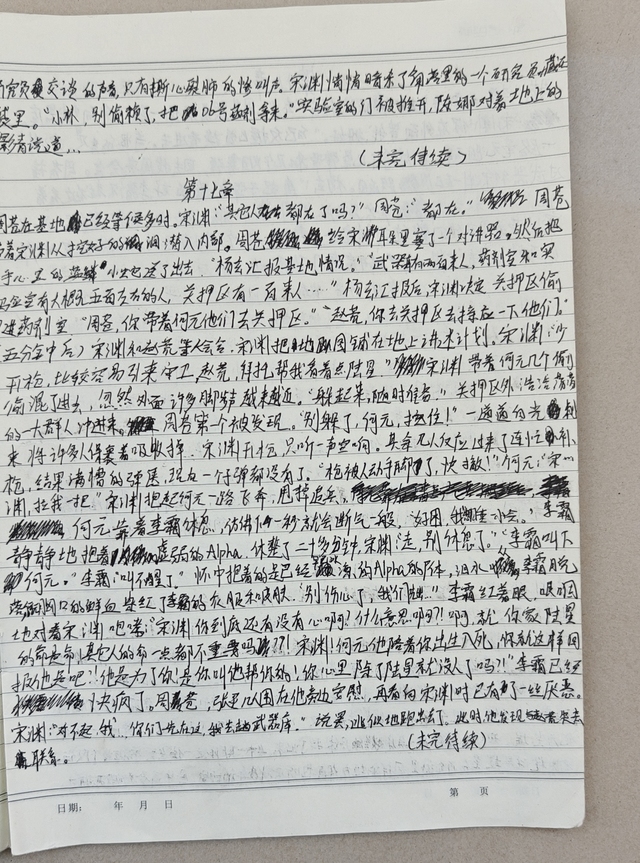 交谈的声音,只有撕心裂肺的惨叫声。宋渊悄悄暗杀了角落里的一个研究员,藏在
里。“小林,别偷懒了,把06号药剂拿来。”实验室的门被推开,陈娜对着地上的
影清说道…
(未完待续)
第十七章
周苍在基地已经等候多时。宋渊:“其它人都在了吗?”周苍:“都在。”周苍
着宋渊从挖好的通入内部。周苍给宋渊耳朵里塞了一个对讲器。然后把
手心里的小虫也送了出去,“杨玄汇报基地情况。”“武器有两百来人,药剂室和实
验室有大概五百左右的人,关押区有一百来人……”杨玄汇报后,宋渊决定关押区偷
进药剂室“周苍,你带着何元他们去关押区。”“赵竞,你去关押区去接应一下他们。”
(五分钟后)宋渊和赵竞等人会合,宋渊把地图铺在地上讲述计划。宋渊“少
开枪,比较容易引来守卫,赵竞,拜托帮我看着点陆星”宋渊带着何元几个人
偷混了进去,忽然外面许多脚步越来越近。“躲起来,随时准备。”关押区外浩浩荡荡
的一大群人冲进来。周苍第一个被发现。“别躲了,何元,抢位!”一道道白光刺
来将许多人保裹着吸收掉。宋渊开枪只听一声空响。其余几人反应过来了连忙补
枪,结果满槽的弹匣,现在一个子弹都没有了。“枪被人动手脚了,快撤!”何元:“宋
渊,拉我一把”宋渊抱起何元一路飞奔,甩掉追兵。
何元靠着李霜休息,仿佛下一秒就会断气一般,李霜
静静地抱着虚弱的Alpha,休整了二十多分钟,宋渊:“走,别休息了。”李霜叫下
何元。“李霜:“叫不醒了”怀中抱着的是已经的Alpha的尸体,泪水李霜目光
胸口的鲜血染红了李霜的衣服和皮肤。“别伤心了,我们”李霜红着眼,哽咽
地对着宋渊咆哮:“宋渊你到底还有没有心啊?!什么意思啊?!啊,就你家陆星
的命是命!其它人的命一点都不重要吗??!宋渊!何元他陪着你出生入死,你就这样回
报他去吧!他是为了你!是你叫他帮你的!你心里除了陆星就没人了吗?!”李霜已经
快疯了。周苍,张里几人围在他旁边安慰,再看向宋渊时已有了一些厌恶。
宋渊:“对不起,我…你们先在这,我去武器库。”说罢,逃似地跑出去了,此时,他发现
联系。
(未完待续)
日期: 年 月 日
第 页